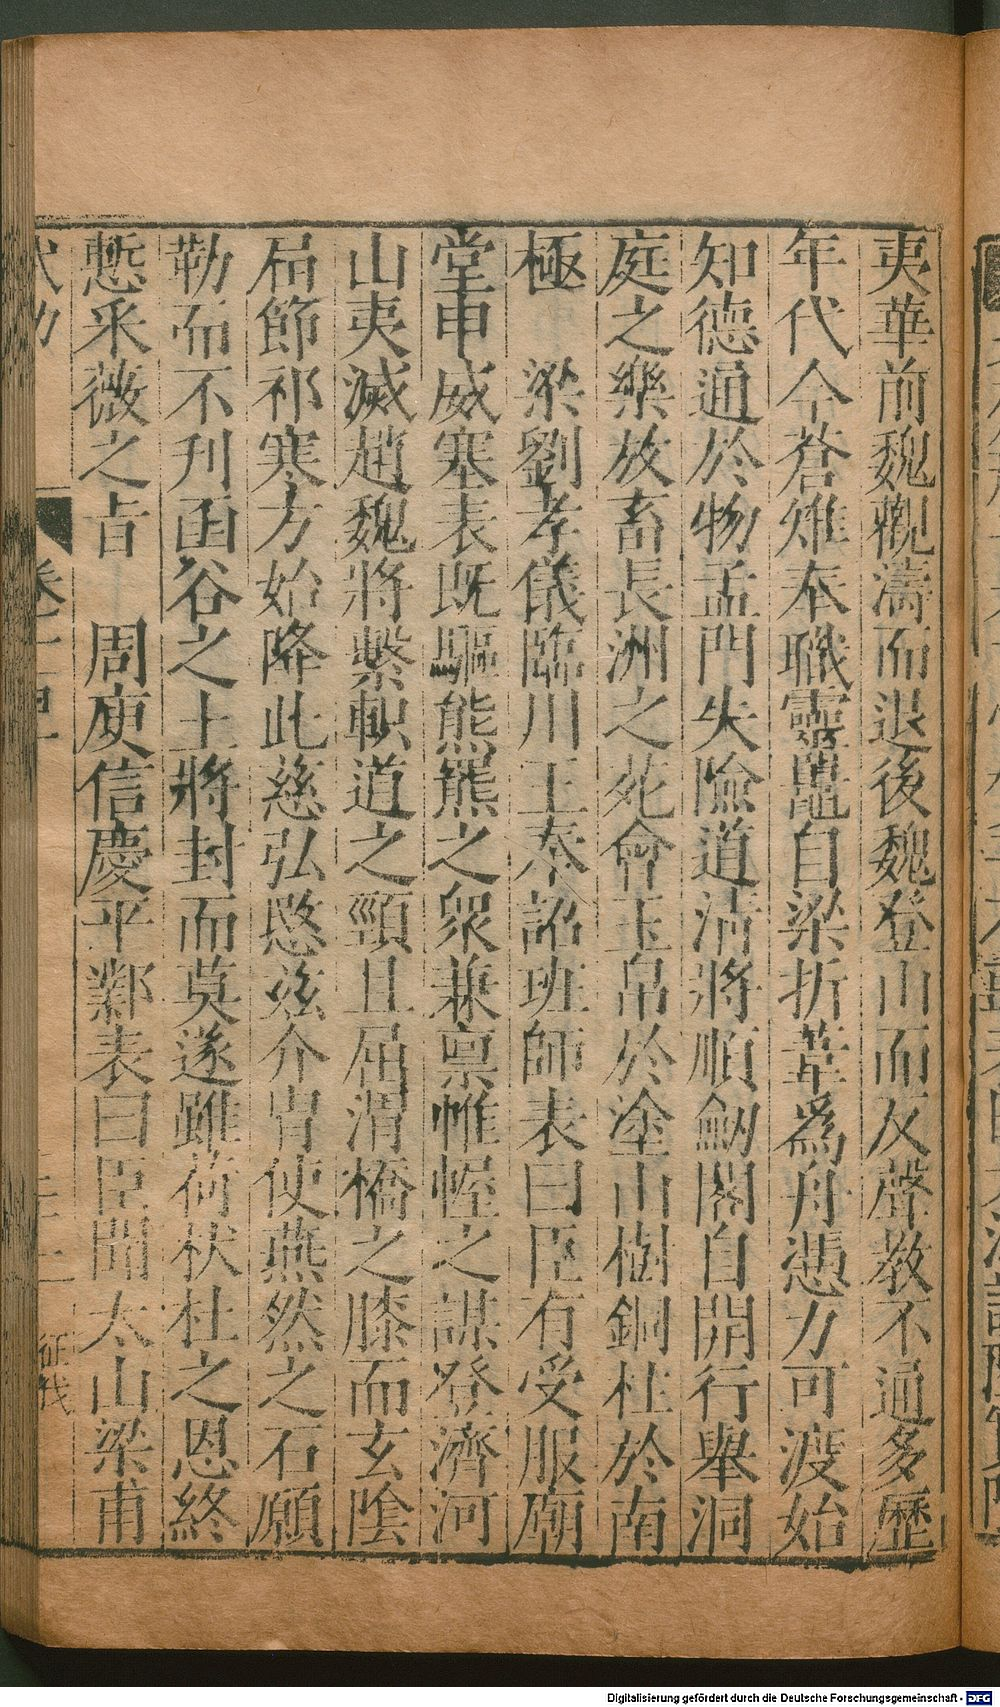 夷華前魏觀濤而退後魏登山而反聲教不通多歷
年代今蒼雉奉職靈鼉自梁折葦爲舟憑力可渡始
知德通於物孟門失險道沾將順劒閣自開行舉洞
庭之樂放畜長洲之苑會玉帛於塗山樹銅柱於南
極　梁劉孝儀臨川王奉詔班師表曰臣有受服廟
堂申威塞表既驅熊羆之衆兼禀帷幄之謀登濟河
山夷滅趙魏將繫軹道之頸且屈渭橋之膝而玄陰
屆節祁寒方始降此慈弘愍兹介冑使燕然之石願
勒而不刋函谷之土將封而莫遂雖荷杕杜之恩終
慙采薇之㫖　周庾信慶平鄴表曰臣聞太山梁甫
卷十四
征伐
Digitalisierung gefördert durch die Deutsche Forschungsgemeinschaft - DFG